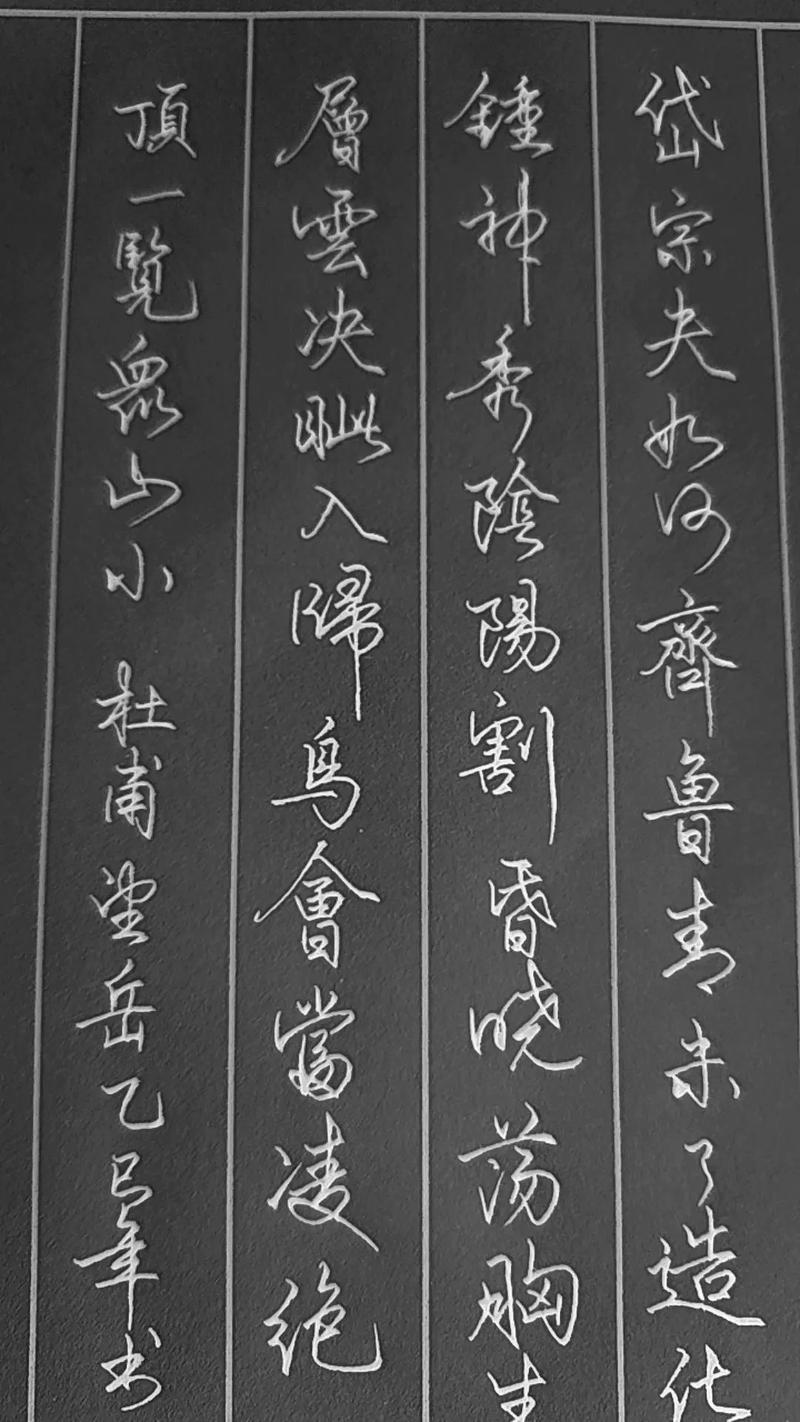 岱宗夫如何齊魯青未了造化
鍾神秀陰陽割昏晓荡胸生
層雲决眦入歸鳥會當凌绝
頂一覽衆山小 杜甫望岳乙巳年书